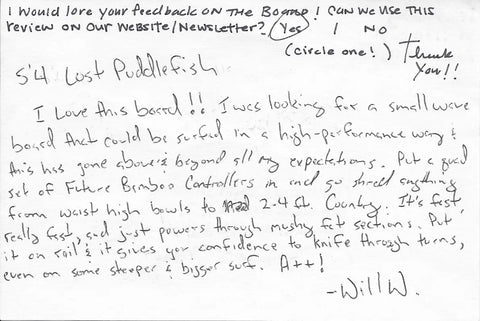 I would love your feedback on the Board! Can we use this
review on our website/newsletter? Yes | No
(circle one!) Thank
You!!
5'4 Lost Puddlefish
I Love this board!! I was looking for a small wave
board that could be surfed in a high-performance way &
this has gone above & beyond all my expectations. Put a quad
set of Future Bamboo Controllers in and go shred anything
from waist high bowls to 2-4 ft. Country. It's fast,
really fast, and just powers through mushy fat sections. Put
it on rail & it gives you confidence to knife through turns,
even on some steeper & bigger surf. A++!
-Will W.